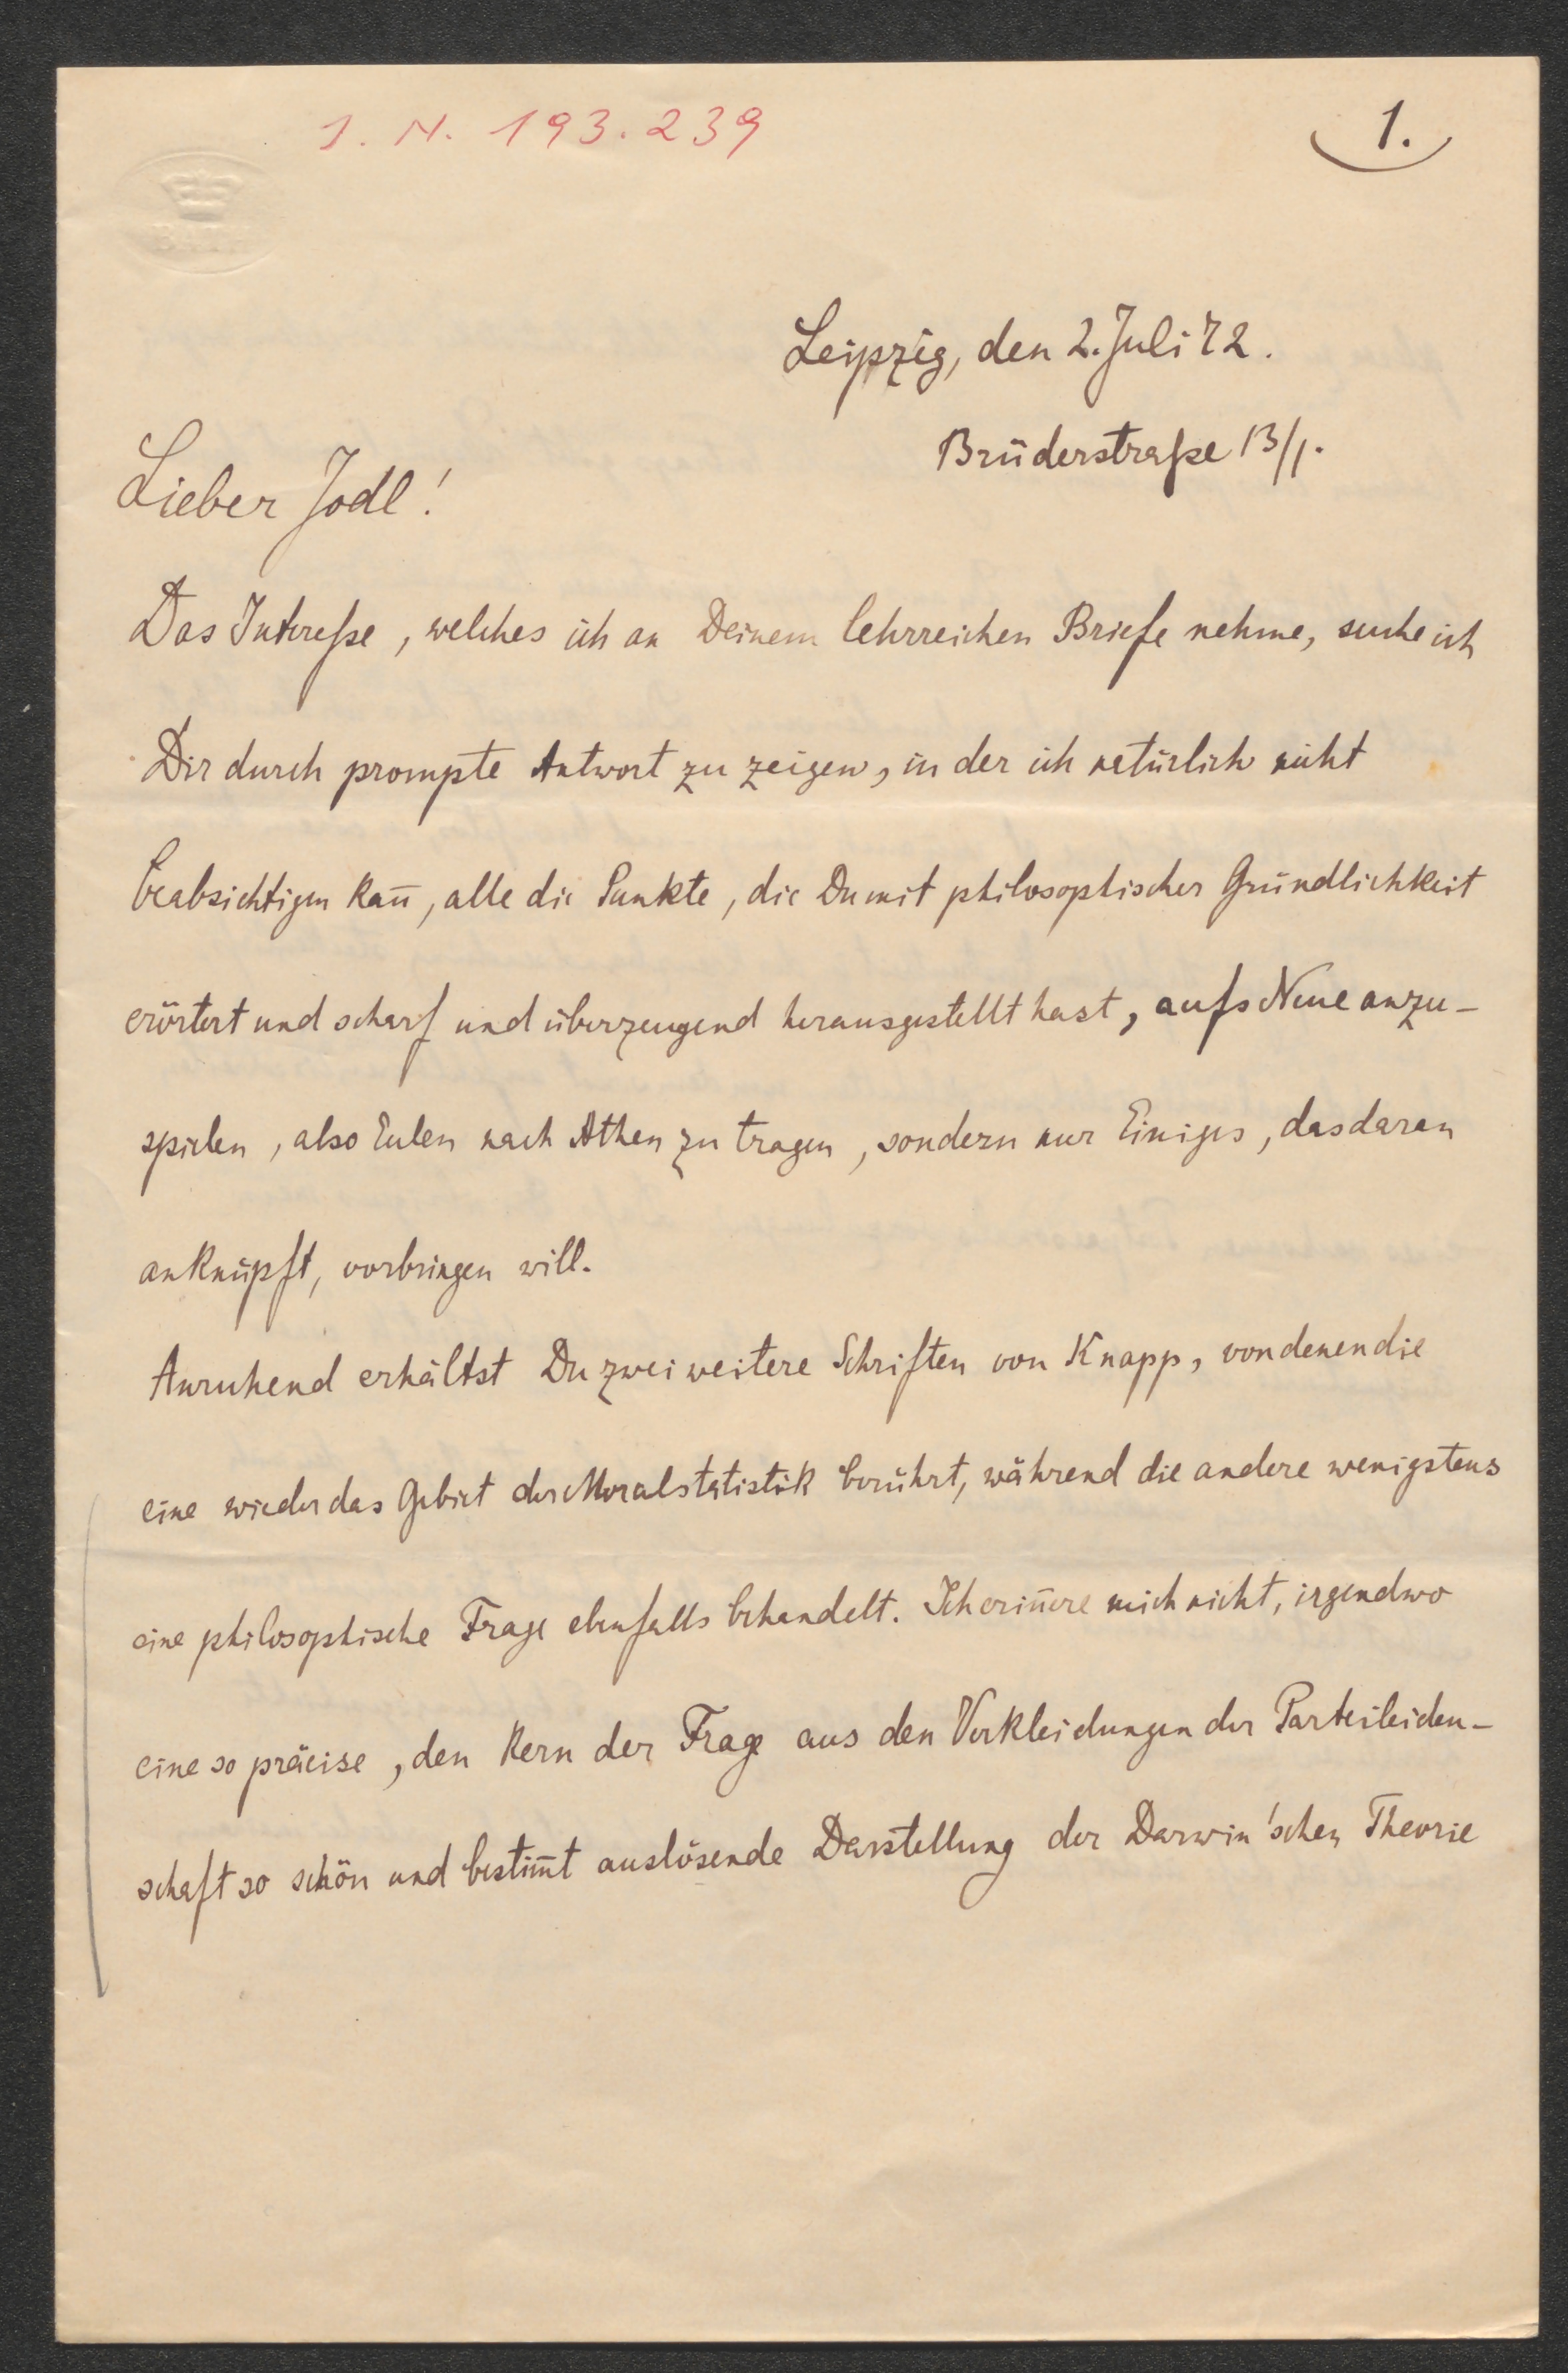 I. N. 193.239
1.
Leipzig, den 2. Juli 72.
Brüderstraße 13/1.
Lieber Jodl!
Das Interesse, welches ich an Deinem lehrreichen Briefe nehme, suche ich
Dir durch prompte Antwort zu zeigen, in der ich natürlich nicht
beabsichtigen kan̄, alle die Punkte, die Du mit philosophischer Gründlichkeit
erörtert und scharf und überzeugend herausgestellt hast, aufs Neue anzu-
spielen, also Eulen nach Athen zu tragen, sondern nur Einiges, das daran
anknüpft, vorbringen will.
Anruhend erhältst Du zwei weitere Schriften von Knapp, von denen die
eine wieder das Gebiet der Moralstatistik berührt, während die andere wenigstens
eine philosophische Frage ebenfalls behandelt. Ich erin̄ere mich nicht, irgendwo
eine so präcise, den Kern der Frage aus den Verkleidungen der Parteileiden-
schaft so schön und bestim̄t auslösende Darstellung der Darwin'schen Theorie